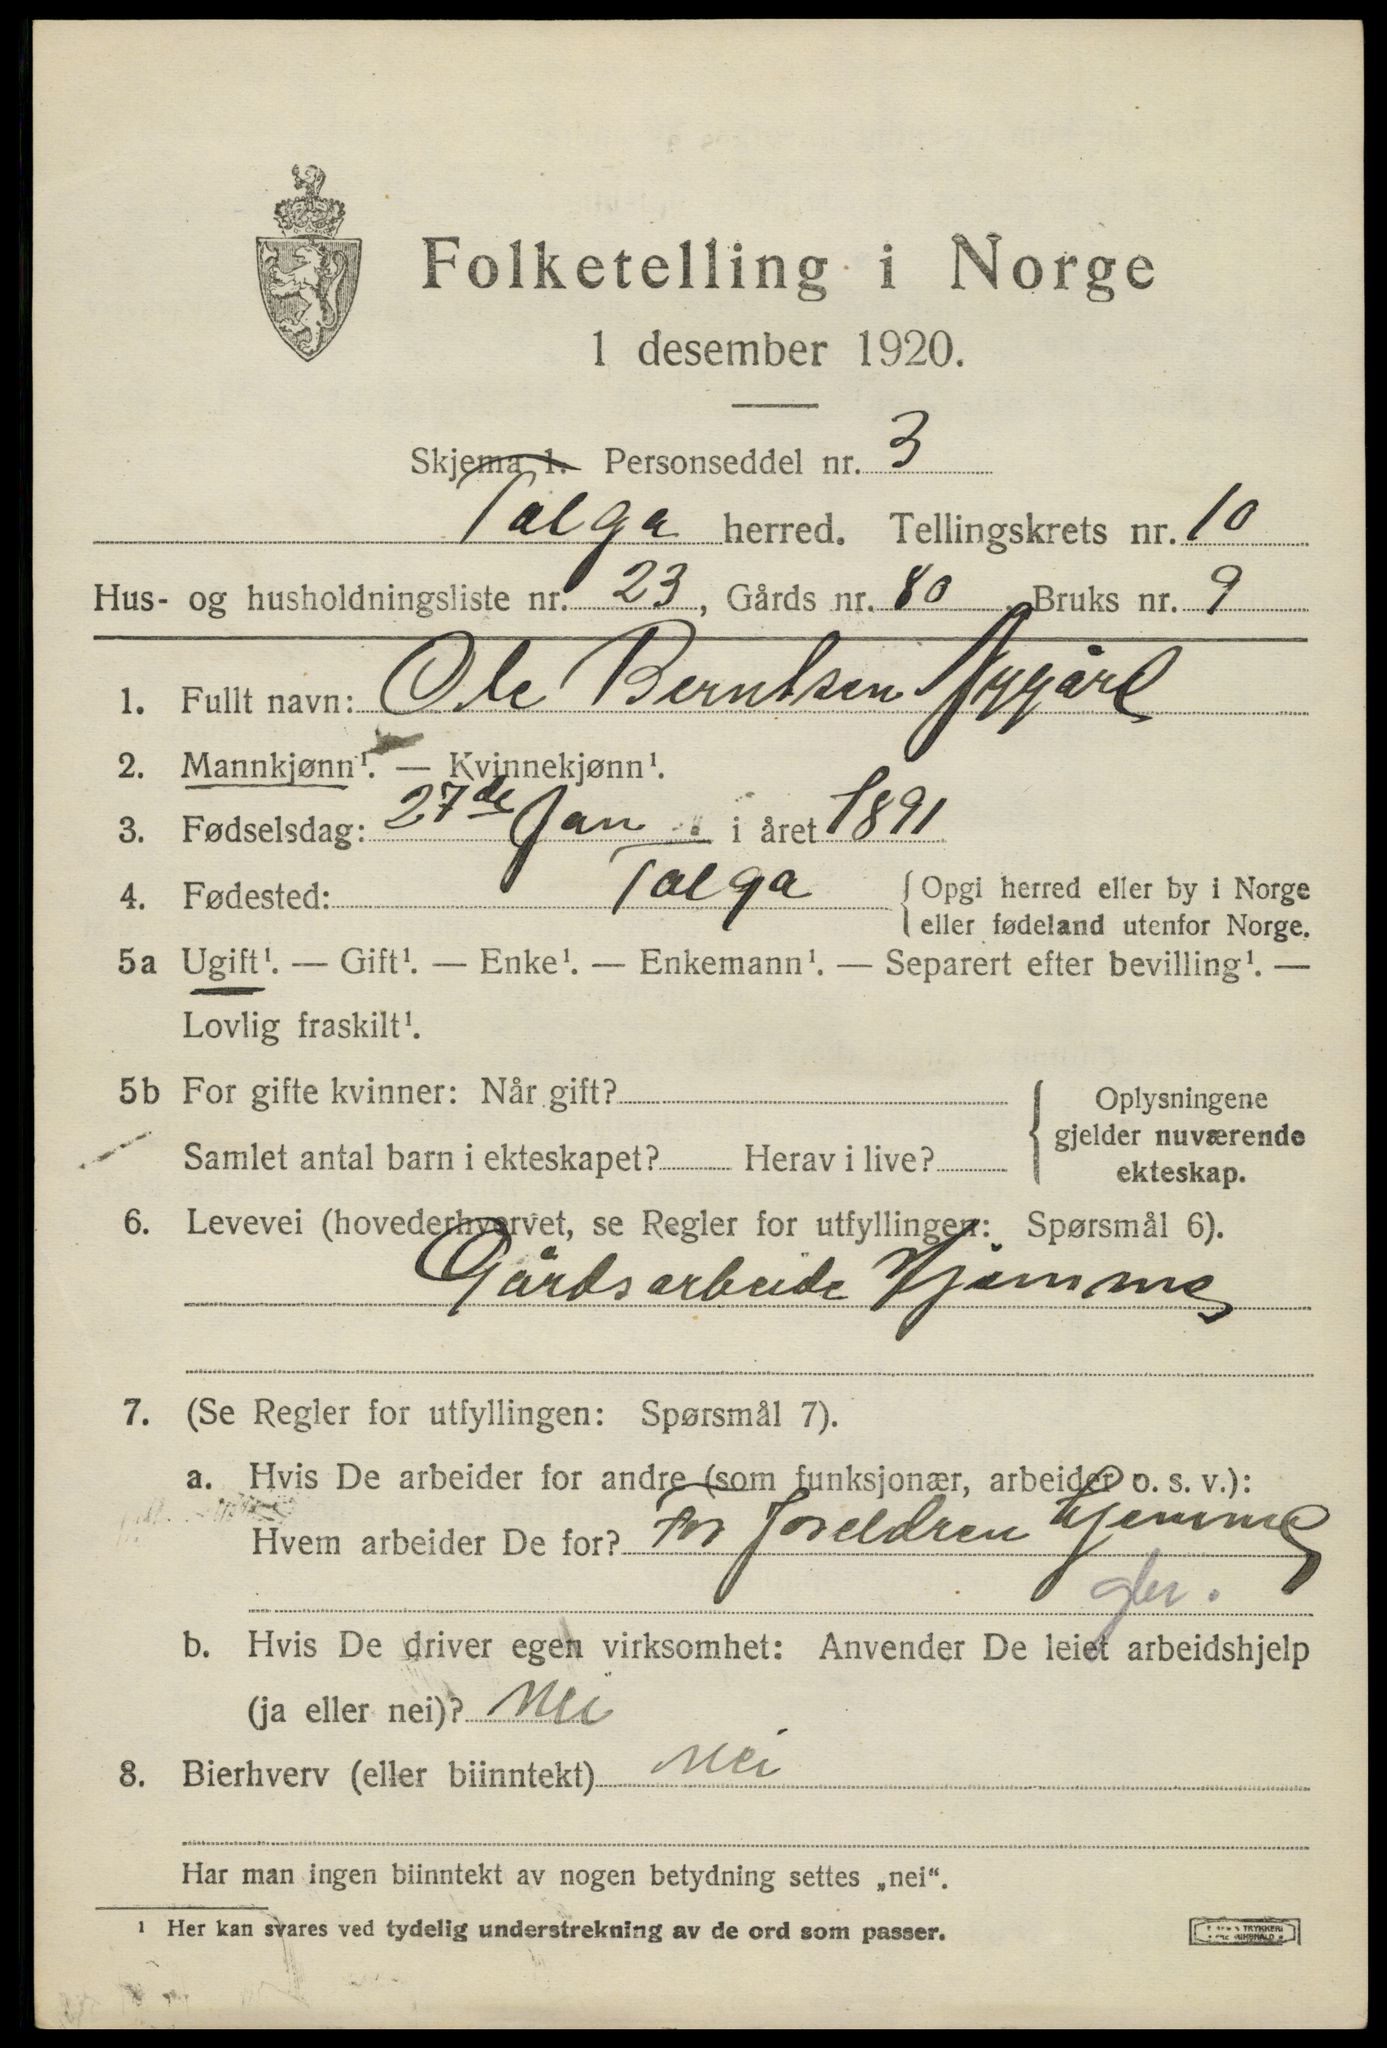 Folketelling i Norge
1 desember 1920.
Skjema 1. Personseddel nr. 3
Tolga herred. Tellingskrets nr. 10
Hus- og husholdningsliste nr. 23, Gårds nr. 80 Bruks nr. 9
1. Fullt navn: Ole Berntsen Nygård
2. Mannkjønn¹. — Kvinnekjønn¹.
3. Fødselsdag: 27de Jan i året 1891
4. Fødested: Tolga {Opgi herred eller by i Norge
eller fødeland utenfor Norge.
5a Ugift¹. — Gift¹. — Enke¹. — Enkemann¹. — Separert efter bevilling¹. —
Lovlig fraskilt¹.
5b For gifte kvinner: Når gift?
Samlet antal barn i ekteskapet? Herav i live?
{Oplysningene
gjelder nuværende
ekteskap.
6. Levevei (hovederhvervet, se Regler for utfyllingen: Spørsmål 6).
Gårdsarbeide Hjemme
7. (Se Regler for utfyllingen: Spørsmål 7).
a. Hvis De arbeider for andre (som funksjonær, arbeider o. s. v.):
Hvem arbeider De for? For foreldren hjemme
b. Hvis De driver egen virksomhet: Anvender De leiet arbeidshjelp
(ja eller nei)? Nei
8. Bierhverv (eller biinntekt) nei
Har man ingen biinntekt av nogen betydning settes „nei“.
¹ Her kan svares ved tydelig understrekning av de ord som passer.